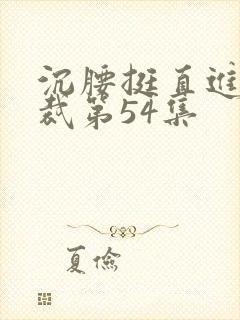 沉腰挺直進
裁第54集
夏儉